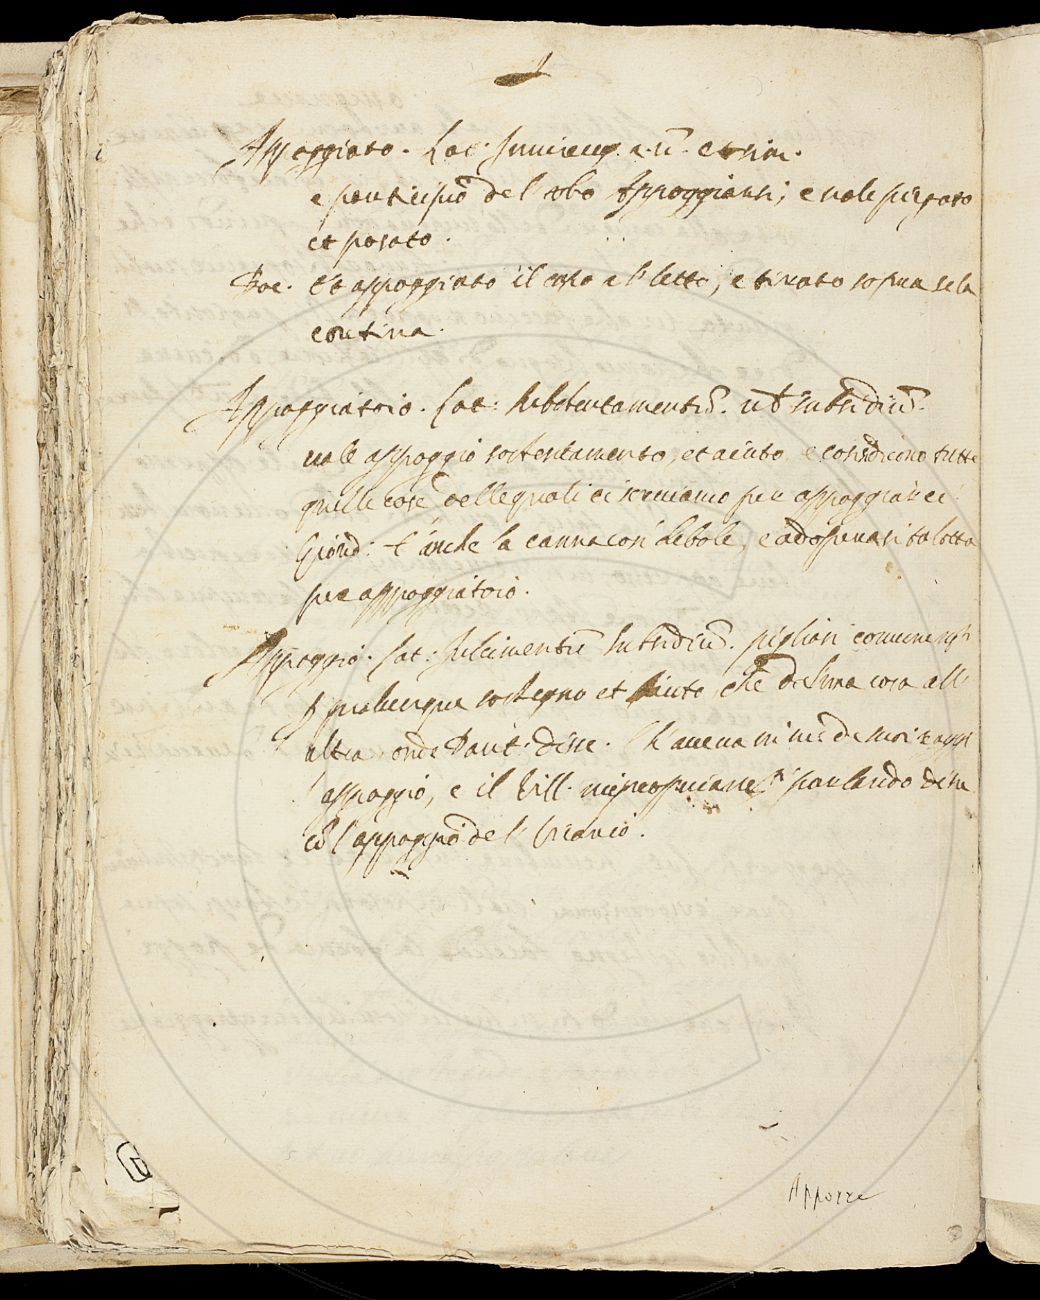 Appoggiato. Lat: Innixus. a. ũ.
e participio del verbo Appoggiarsi, e vale piegato
et posato.
Boc. Et appoggiato il capo al letto, e tirato sopra se la
cortina.
Appoggiatoio. Lat: substentamentũ. ut subsidiũ.
vale appoggio sostentamento, et aiuto, e cosi dicono tutte
quelle cose delle quali ci serviamo per appoggiarci
Giord: è anche la canna cosi debole, e adoperasi talotta
per appoggiatoio.
Appoggio. Lat: fulcimentũ subsidiũ. pigliasi comunem.
p qualunque sostegno et aiuto che da una cosa all'
altra, onde Dant: disse.
appoggio, e il Vill. parlando disse
cõ l'appoggio del
Apporre